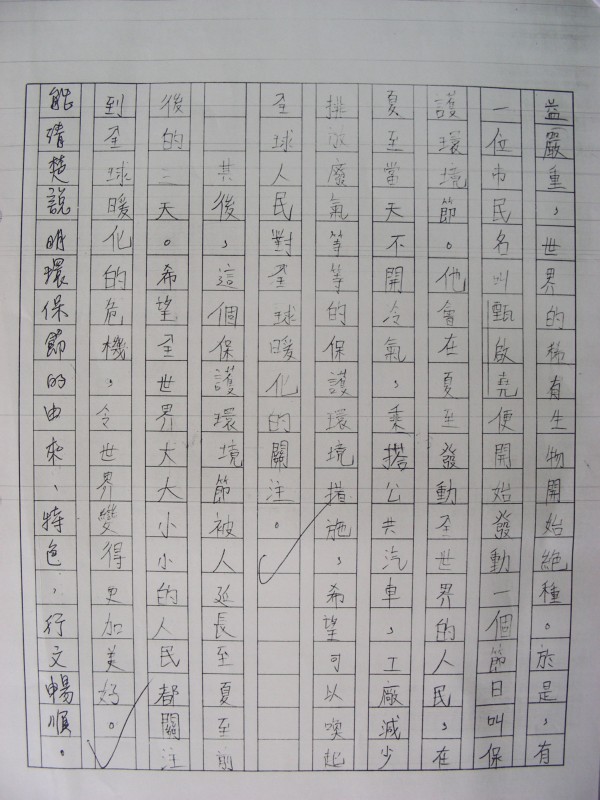 益嚴重，世界的稀有生物開始絕種。於是，有
一位市民名叫甄啟堯便開始發動一個節日叫保
護環境節。他會在夏至發動全世界的人民，在
夏至當天不開冷氣，乘搭公共汽車，工廠減少
排放廢氣等等的保護環境措施，希望可以喚起
全球人民對全球暖化的關注。
其後，這個保護環境節被人延長至夏至前
後的二天。希望全世界大大小小的人民都關注
到全球暖化的危機，令世界變得更加美好。
能清楚說明環保節的由來、特色，行文暢順。